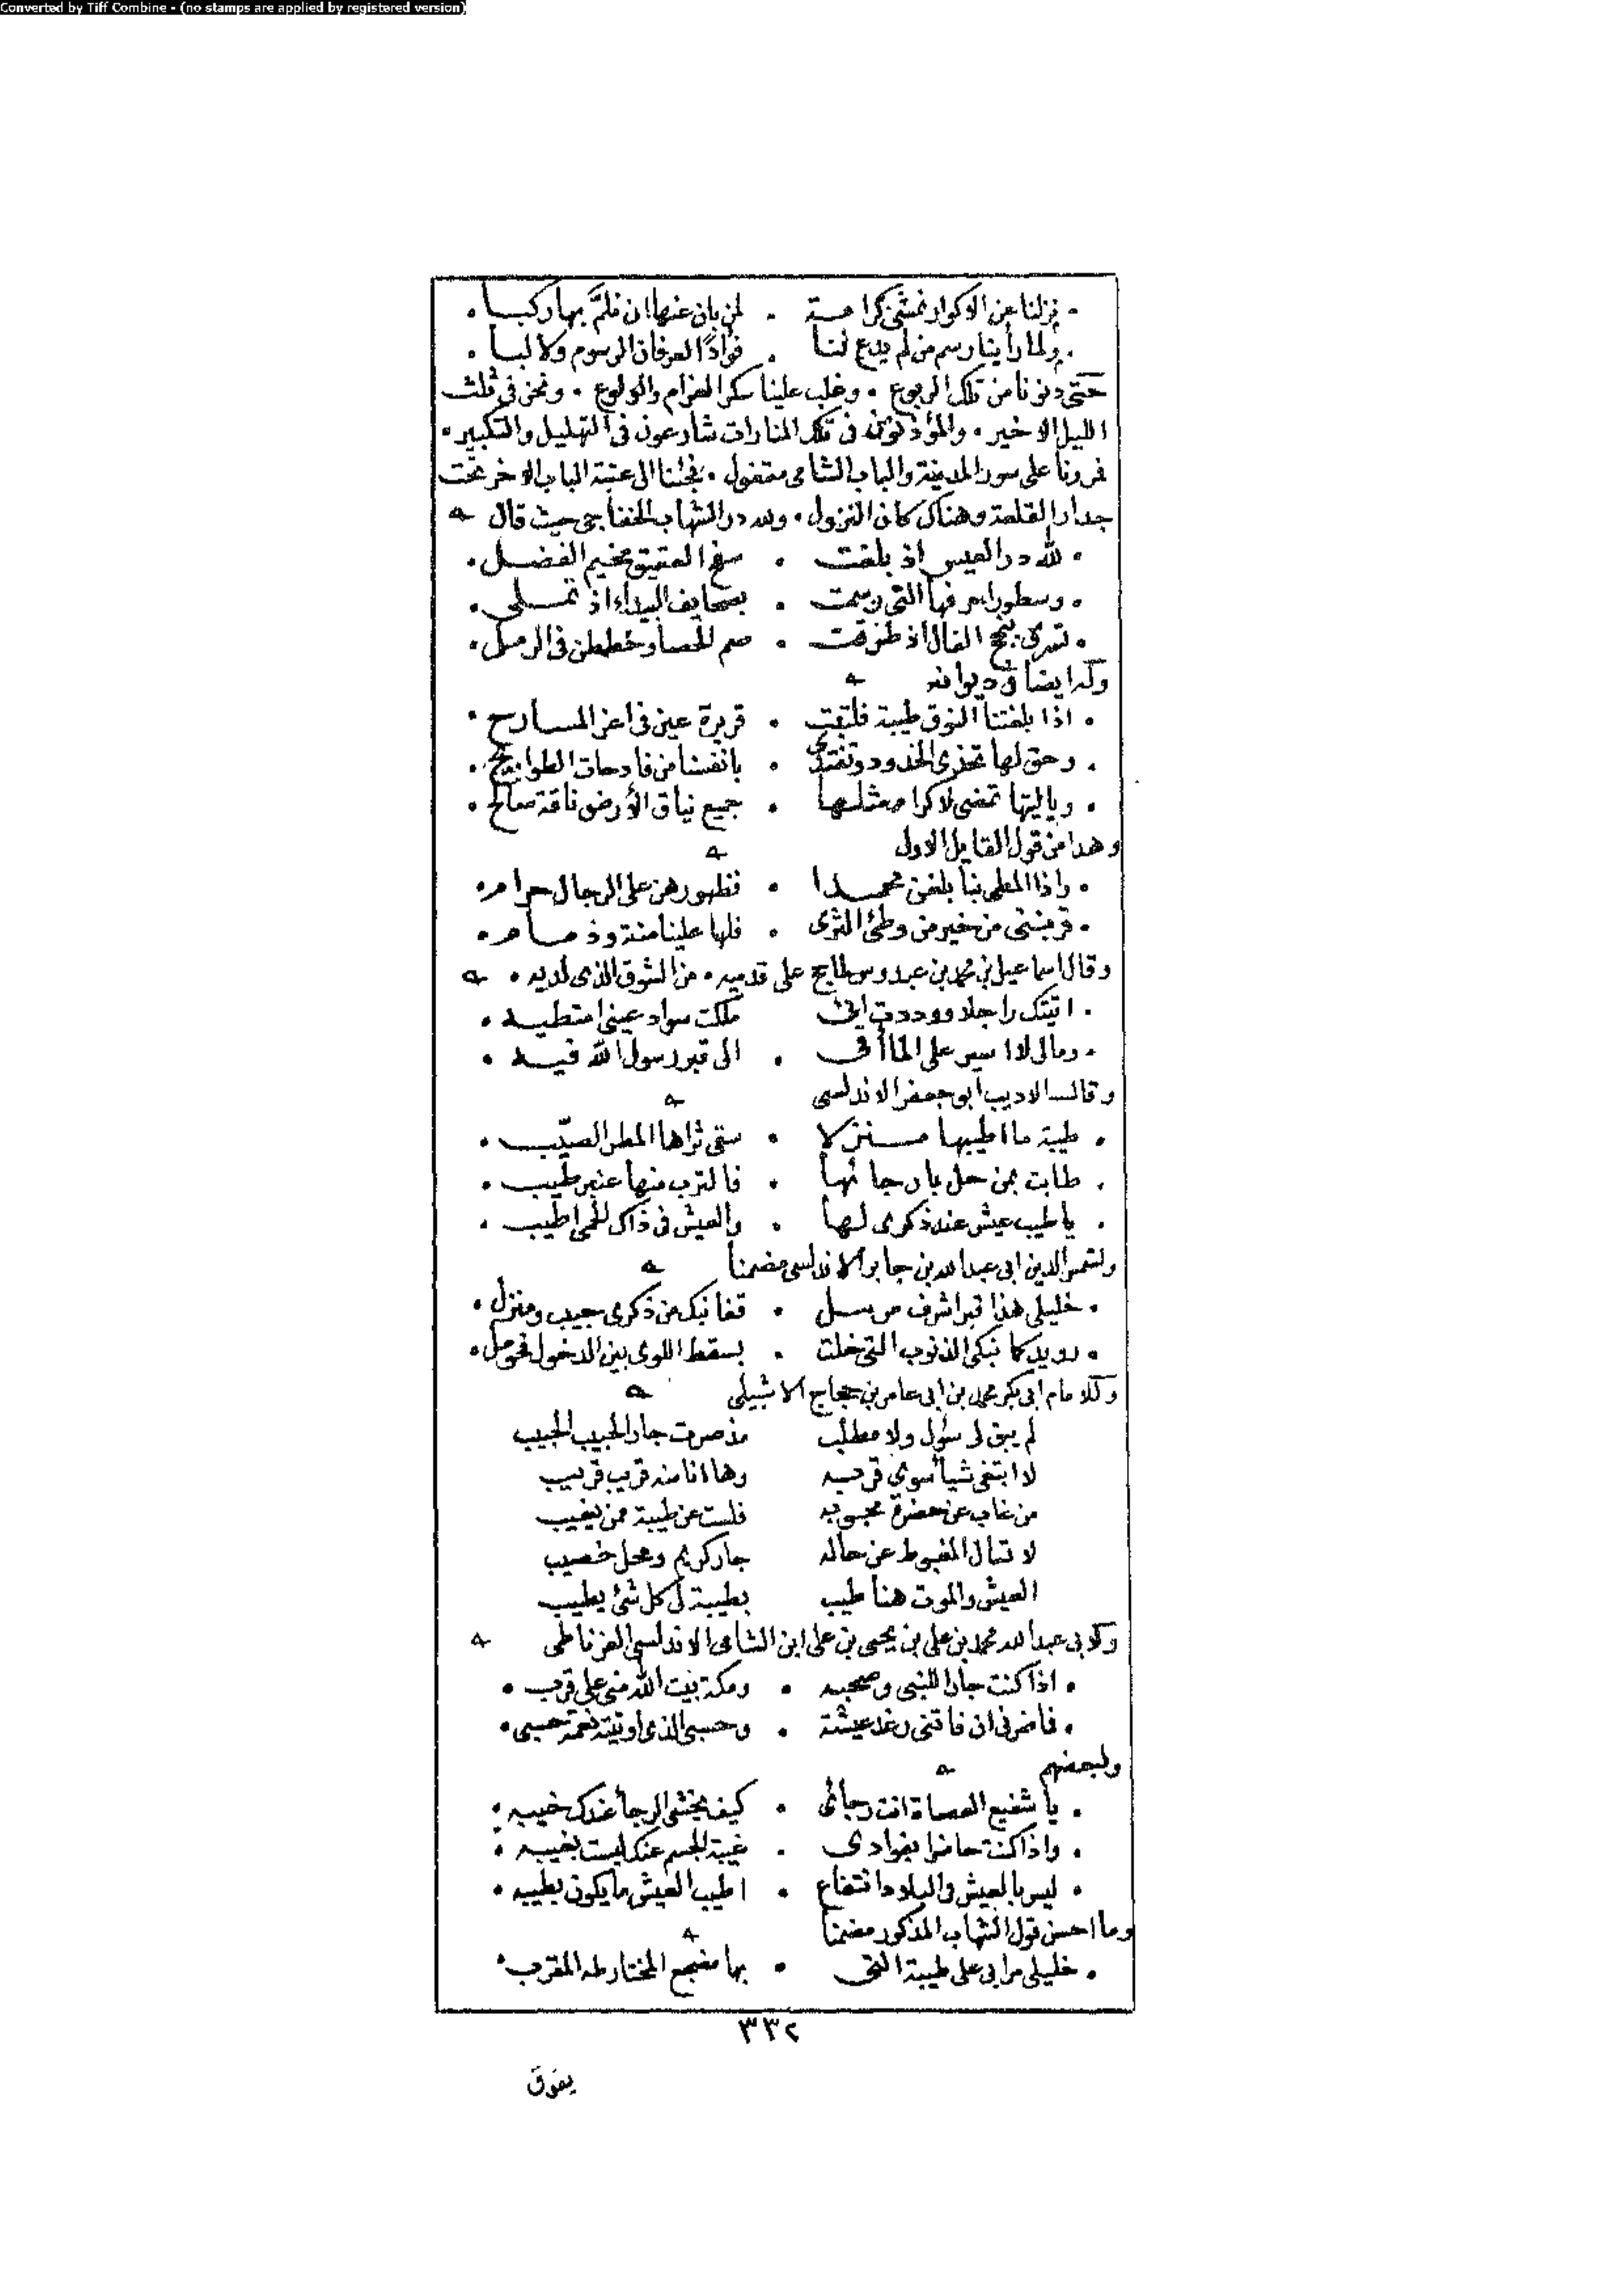 Converted by Tiff Combine - (no stamps are applied by registered version)
• نزلنا عن الاكوار نمشى كرامة • لمن بان عنها ان نلمَّ بها ركبا •
• ولما رأينا رسم من لم يدع لنا • فؤادًا لعرفان الرسوم ولا لبا •
حتى دنونا من تلك الربوع • وغلب علينا سكر الغرام والولوع • ونحن فى ثلث
الليل الاخير • والمؤذنون فى تلك المنارات شارعون فى التهليل والتكبير •
فمررنا على سور المدينة والباب الشامى مقفول • فجئنا الى عتبة الباب الاخر تحت
جدار القلعة وهناك كان النزول • ولله در الشهاب الخفاجى حيث قال
• لله در العيس اذ بلغت • سفح العقيق مخيم الفضل •
• وسطور احرفها التى رسمت • بصحايف البيداء اذ تملى •
• تسرى بنجح الفال اذ طرقت • صم الحصا وخططن فى الرمل •
وله ايضا فى ديوانه
• اذا بلغتنا النوق طيبة فلتقت • قريرة عين فى اعز المسارح •
• وحق لها تحذى الخدود وتفتدى • بانفسنا من فادحات الطوايح •
• وياليتها تمضى لاكرام مثلها • جميع نياق الأرض ناقة صالح •
وهذا من قول القايل الاول
• واذا المطى بنا بلغن محمدا • فظهورهن على الرجال حرام •
• قربننى من خير من وطئ الثرى • فلها علينا منة وذمام •
وقال اسماعيل بن محمد بن عبدوس لما حج على قدميه • من الشوق الذى لديه •
• اتيتك راجلا ووددت انى ملكت سواد عينى امتطيه •
• ومالى لا اسير على المأقى • الى قبر رسول الله فيه •
وقال الاديب ابو جعفر الاندلسى
• طيبة ما اطيبها منزلا • سقى ثراها المطر الصيّب •
• طابت بمن حل بارجائها • فالترب منها عنبر طيب •
• يا طيب عيش عند ذكرى لها • والعيش فى ذاك الحمى اطيب •
ولشمس الدين ابى عبد الله بن جابر الاندلسى مضمنا
• خليلى هذا قبر اشرف مرسل • قفا نبك من ذكرى حبيب ومنزل •
• رويدكما نبكى الذنوب التى خلت • بسقط اللوى بين الدخول فحومل •
وللامام ابى بكر محمد بن ابى عامر بن حجاج الاشبيلى
لم يبق لى سؤل ولا مطلب مذ صرت جار الحبيب الحبيب
لا ابتغى شيأ سوى قربه وها انا منه قريب قريب
من غاب عن حضرة محبوبه فلست عن طيبة ممن يغيب
لا تسأل المغبوط عن حاله جار كريم ومحل خصيب
العيش والموت هنا طيب بطيبة لى كل شئ يطيب
ولابى عبد الله محمد بن على بن يحيى بن على ابن الشامى الاندلسى الغرناطى
• اذا كنت جارا للنبى وصحبه • ومكة بيت الله منى على قرب •
• فما ضرنى ان فاتنى رغد عيشة • وحسبى الذى اوتيته نعمة حسبى •
ولبعضهم
• يا شفيع العصاة انت رجائى • كيف يخشى الرجا عندك خيبه •
• واذا كنت حاضرا بفوادى • غيبة الجسم عنك ليست بغيبه •
• ليس بالعيش فى البلاد انتفاع • اطيب العيش ما يكون بطيبه •
وما احسن قول الشهاب المذكور مضمنا
• خليلى مرا بى على طيبة التى • بها مضجع المختار طه المقرب •
٣٣٢
يفوق